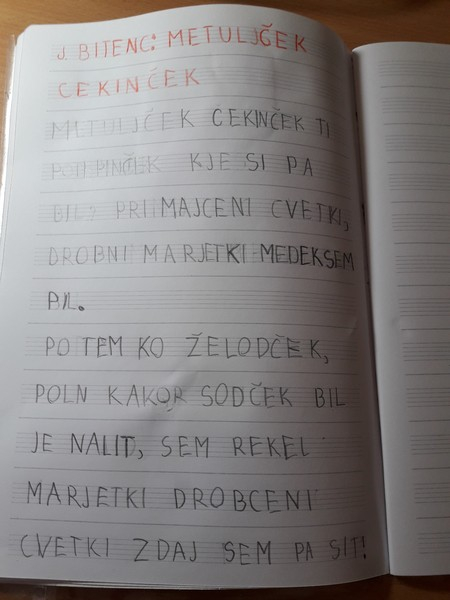 J. BITENC: METULJČEK
CEKINČEK
METULJČEK CEKINČEK TI
POTEPINČEK KJE SI PA
BIL? PRI MAJCENI CVETKI,
DROBNI MARJETKI MEDEK SEM
PIL.
POTEM KO ŽELODČEK,
POLN KAKOR SODČEK BIL
JE NALIT, SEM REKEL
MARJETKI DROBCENI
CVETKI ZDAJ SEM PA SIT!